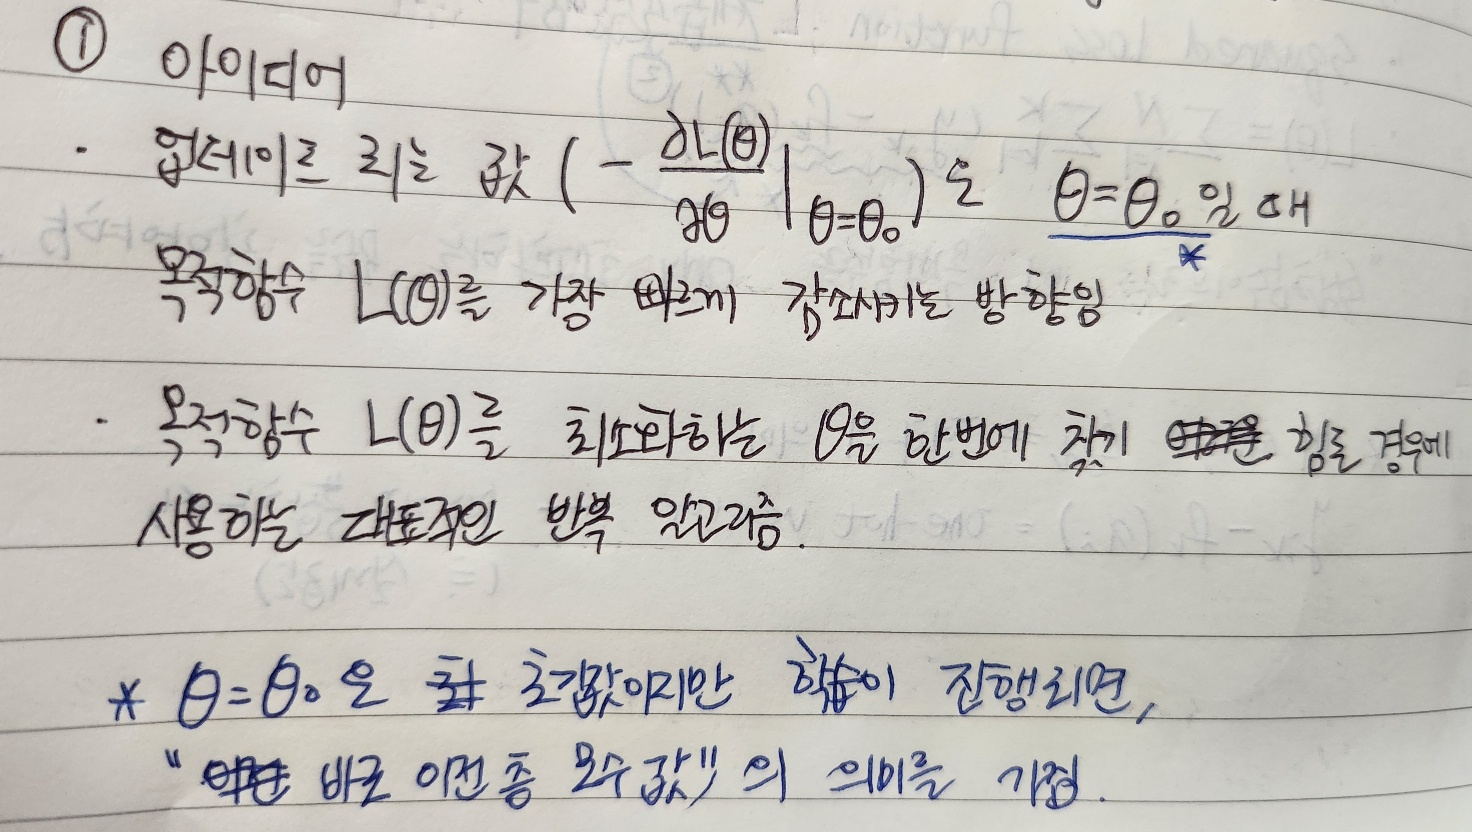 ① 아이디어
· 업데이트 되는 값 (- ∂L(θ)/∂θ |θ=θ₀) 는 θ=θ₀일 때
*
목적함수 L(θ)를 가장 빠르게 감소시키는 방향임
· 목적함수 L(θ)를 최소화하는 θ을 한번에 찾기 힘들 경우에
사용하는 대표적인 반복 알고리즘.
* θ=θ₀은 초깃값이지만 학습이 진행되면,
"바로 이전 층 모수값"의 의미를 가짐.